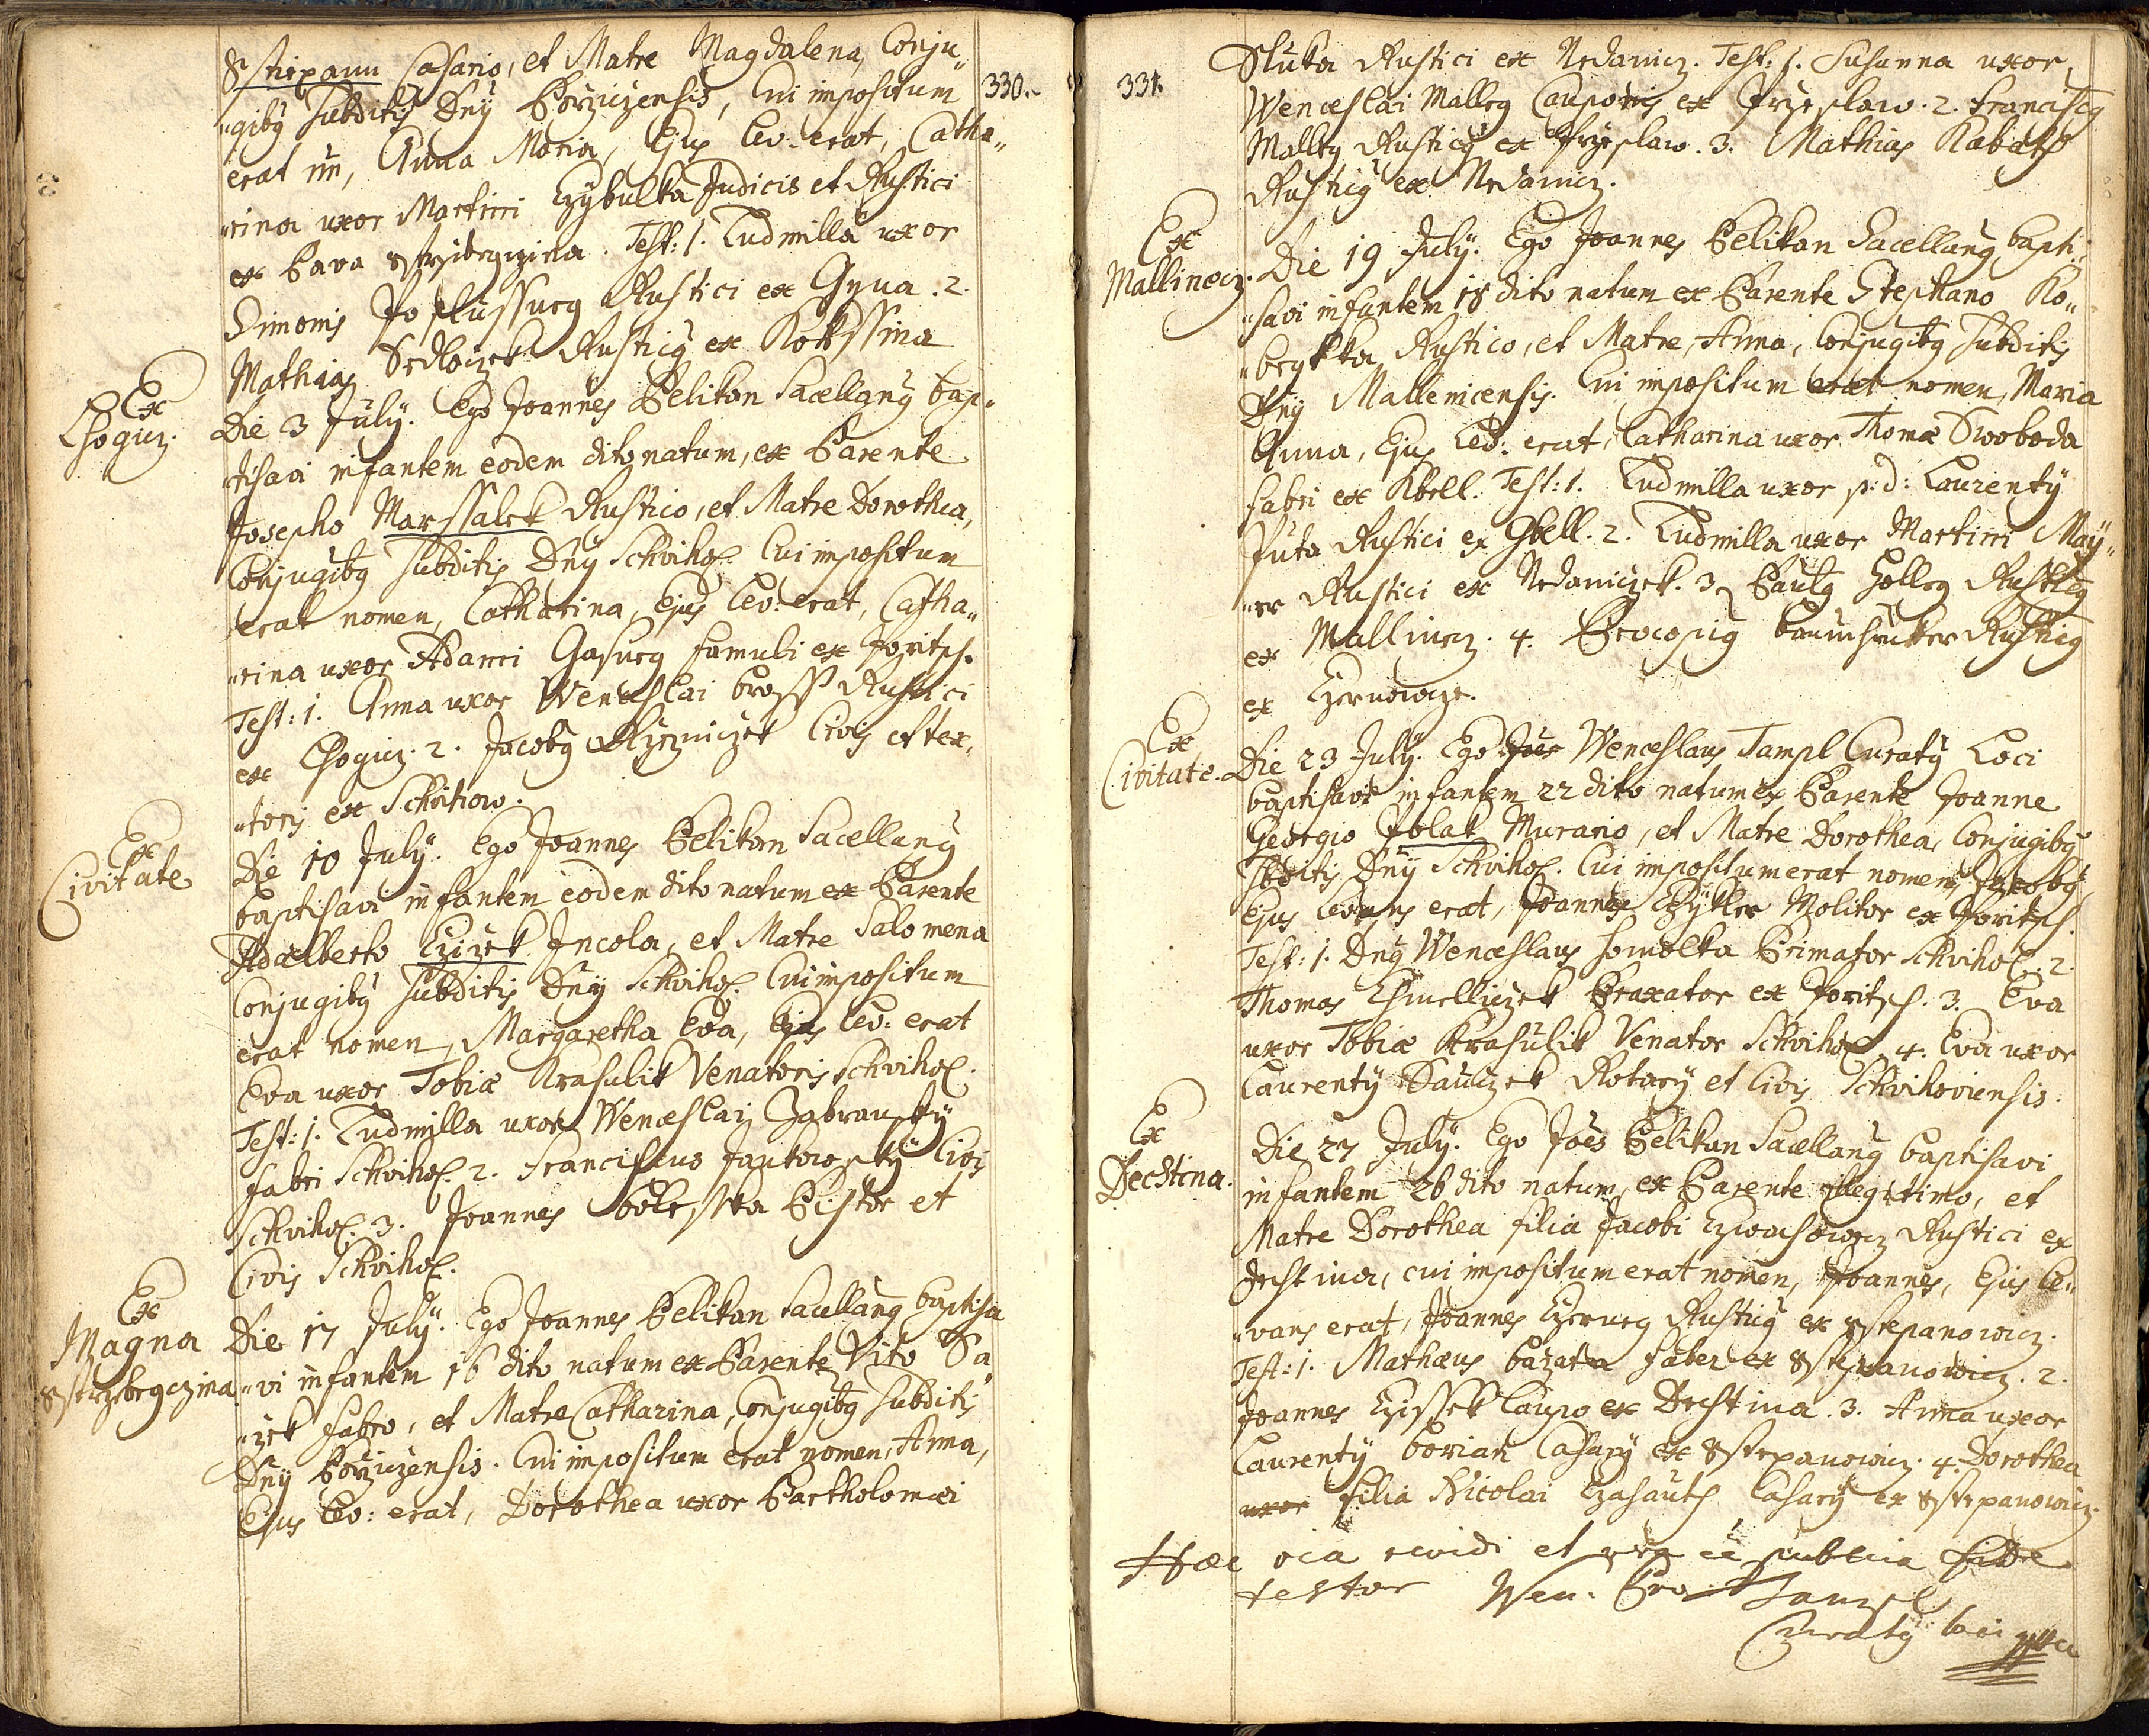 Sstiepann Casario, et Matre Magdalena, Conju„
„gibꝰ Subditis Dnÿ Porzizensis, Cui impositum
330.
erat nn, Anna Maria, Ejus Lev: erat, Catha„
„rina uxor Martini Czybulka Judicis et Rustici
ex Parva Test: 1. Ludmilla uxor
Simonis Rustici ex Gyna. 2.
Mathias Sedlaczek Rusticꝰ ex Kokssina
Ex
Lhogicz.
Die 3 Julÿ. Ego Joannes Pelikan Sacellanꝰ bap„
„tisavi infantem eodem dito natum, ex Parente
Josepho Marssalek Rustico, et Matre Dorothea,
Conjugibꝰ Subditis Dnÿ Schviho[v]. Cui impositum
erat nomen, Catharina, Ejus Lev: erat, Catha„
„rina uxor Adami famuli ex Poritsch.
Test: 1. Anna uxor Wenceslai Bross Rustici
ex Lhogicz. 2. Jacobꝰ Civis et tex„
„toris ex Schvihow.
Ex
Civitate
Die 10 Julÿ. Ego Joannes Pelikan Sacellanꝰ
baptisavi infantem eodem dito natum ex Parente
Adalberto Czizek Incola, et Matre Salomena
Conjugibꝰ Subditis Dnÿ Schviho[v]. Cui impositum
erat nomen, Margaretha Eva, Ejus Lev: erat
Eva uxor Tobiæ Krasulik Venatoris Schviho[v].
Test: 1. Ludmilla uxor Wenceslai Zabranskÿ
fabri Schviho[v]. 2. Franciscus Jankowskÿ Civis
Schviho[v]. 3. Joannes Pistor et
Civis Schviho[v].
Ex
Magna
Die 17 Julÿ. Ego Joannes Pelikan Sacellanꝰ baptisa
„vi infantem 16 dito natum ex Parente Vito Sa„
„zek fabro, et Matre Catharina, Conjugibꝰ Subditis
Dnÿ Porzizensis. Cui impositum erat nomen, Anna,
Ejus Lev: erat, Dorothea uxor Bartholomæi
331.
Sluka Rustici ex Nedanicz. Test: 1. Susanna uxor
Wenceslai Malleg Cauponis ex Przeslaw. 2. Franciscꝰ
Malleg Rusticꝰ ex Przeslaw. 3. Mathias Kabat
Rusticꝰ ex Nedanicz.
Ex
Mallinecz.
Die 19 Julÿ. Ego Joannes Pelikan Sacellanꝰ bapti„
„savi infantem 18 dito natum ex Parente Stephano Ko„
Rustico, et Matre, Anna, Conjugibꝰ Subditis
Dnÿ Mallenicensis. Cui impositum erat nomen, Maria
Anna, Ejus Lev: erat, Catharina uxor Thomæ Swoboda
fabri ex Kbell. Test: 1. Ludmilla uxor p: d: Laurentÿ
Puta Rustici ex Gbell. 2. Ludmilla uxor Martini Maÿ„
„er Rustici ex Nedaniczek. 3. Paulꝰ Holleg Rusticꝰ
ex Mallinecz. 4. Procopiꝰ Rusticꝰ
ex
Ex
Civitate.
Die 23 Julÿ. Ego Wenceslaus Tampl Curatꝰ Loci
baptisavi infantem 22 dito natum ex Parente Joanne
Georgio Polak Murario, et Matre Dorothea, Conjugibꝰ
Sbditis Dnÿ Schviho[v]. Cui impositum erat nomen Jacobꝰ
Ejus Levans erat, Joannes Molitor ex Poritsch.
Test: 1. Dnꝰ Wenceslaus Homolka Primator Schviho[v]. 2.
Thomas Chmelliczek Braxator ex Poritsch. 3. Eva
uxor Tobiæ Krasulik Venator Schviho[v]. 4. Eva uxor
Laurentÿ Rotarÿ et Civis Schvihoviensis.
Ex
Dechtina.
Die 27 Julÿ. Ego Joës Pelikan Sacellanꝰ baptisavi
infantem 26 dito natum, ex Parente illegitimo, et
Matre Dorothea filia Jacobi Rustici ex
Dechtina, cui impositum erat nomen, Joannes, Ejus Le„
„vans erat, Joannes Rusticꝰ ex Sstepanowicz.
Test: 1. Mathæus Bazata faber ex Sstepanowicz. 2.
Joannes Czissek Caupo ex Dechtina. 3. Anna uxor
Laurentÿ Casarÿ ex Sstepanowicz. 4. Dorothea
uxor filia Nicolai Casarÿ ex Sstepanowicz.
Hæc oia revidi et publica fide
testor Wen: Tampl
Curatꝰ loci